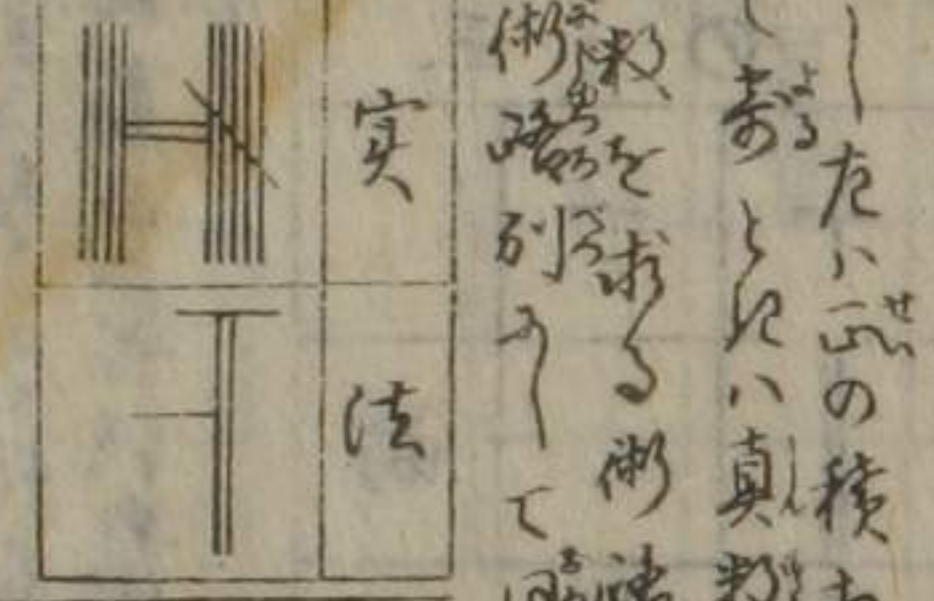 し左ハ正の積
て寄るときハ真数
数を求る術
術路別にして
実
法